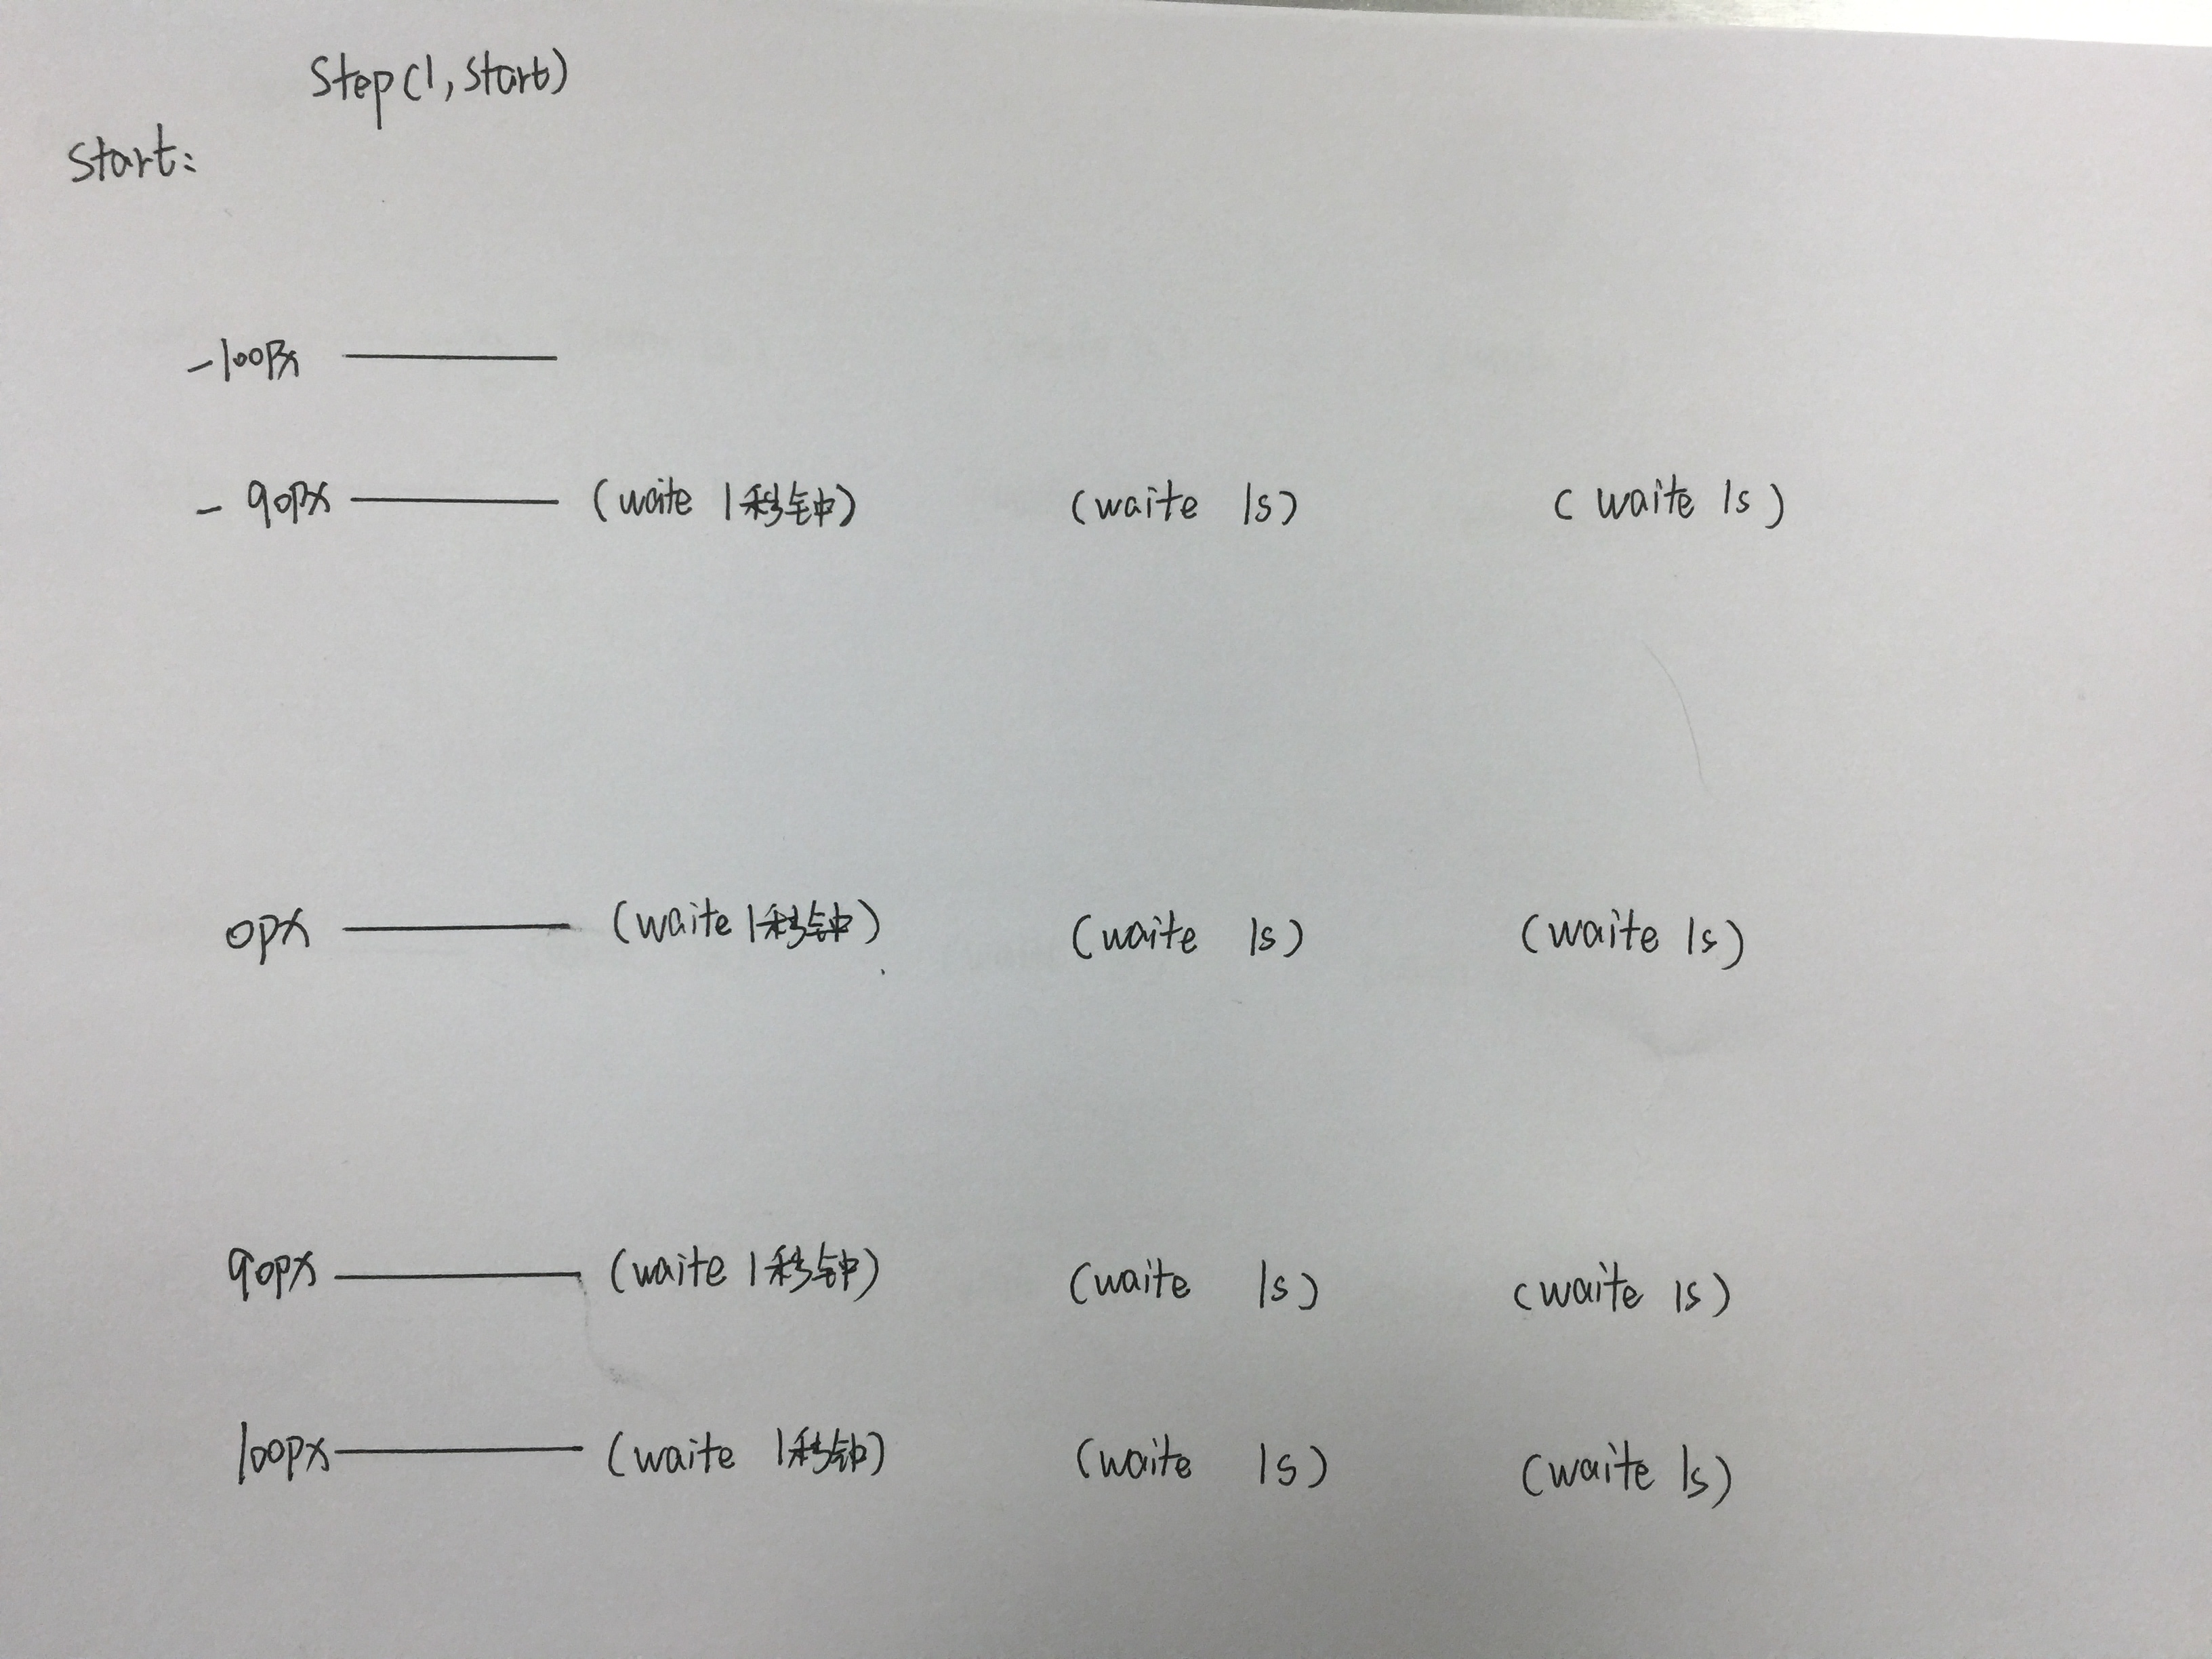 Step(1,start)
start:
-100px
- 90px (waite 1秒钟) (waite 1s) (waite 1s)
0px (waite 1秒钟) (waite 1s) (waite 1s)
90px (waite 1秒钟) (waite 1s) (waite 1s)
100px (waite 1秒钟) (waite 1s) (waite 1s)